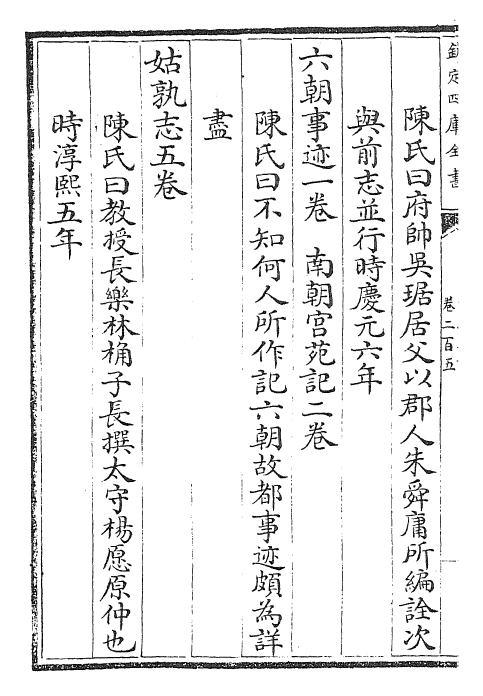 欽定四庫全書
卷二百五
陳氏曰府帥吳琚居父以郡人朱舜庸所編詮次
與前志並行時慶元六年
六朝事迹一卷　南朝宫苑記二卷
陳氏曰不知何人所作記六朝故都事迹頗為詳
盡
姑孰志五卷
陳氏曰教授長樂林桷子長撰太守楊愿原仲也
時淳熙五年